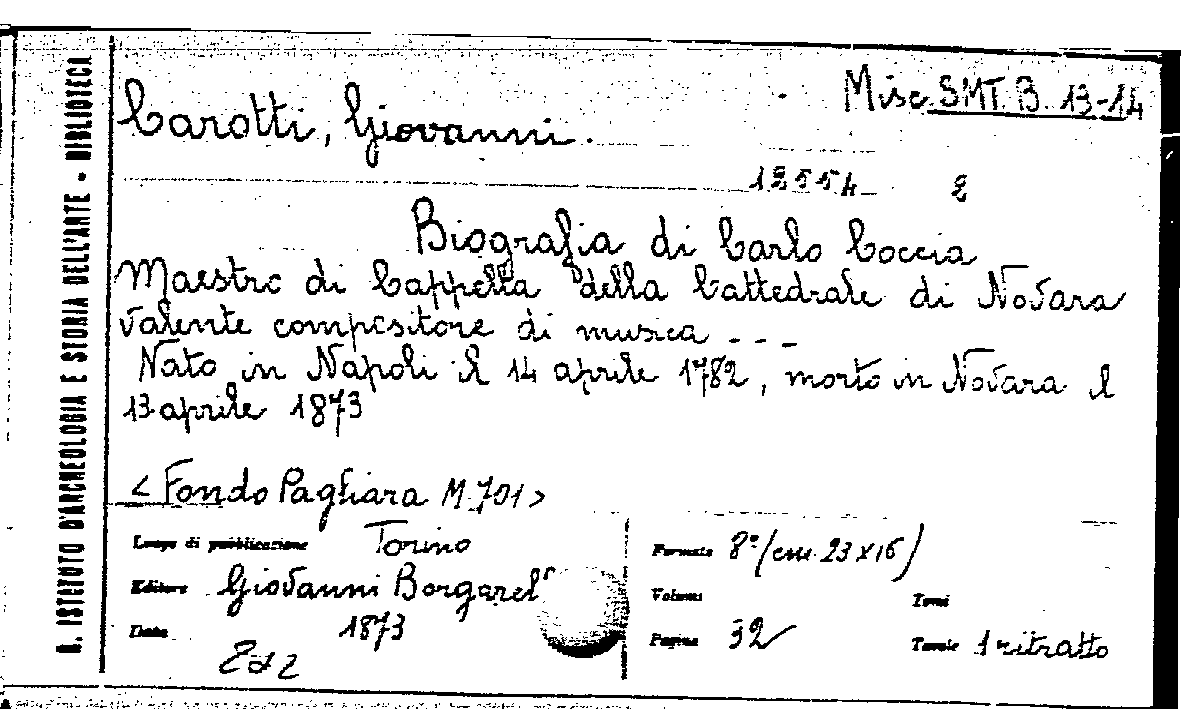 R. ISTITUTO D'ARCHEOLOGIA E STORIA DELL'ARTE - BIBLIOTECA
Misc. SMT. B. 13-14
Carotti, Giovanni.
12554 2
Biografia di Carlo Coccia
Maestro di Cappella della Cattedrale di Novara
valente compositore di musica - - -
Nato in Napoli il 14 aprile 1782, morto in Novara il
13 aprile 1873
<Fondo Pagliara M.701>
Luogo di pubblicazione Torino
Editore Giovanni Borgarel
Data 1873
Ed 2
Formato 8° (cm. 23x16)
Volume Tomi
Pagine 32 Tavole 1 ritratto